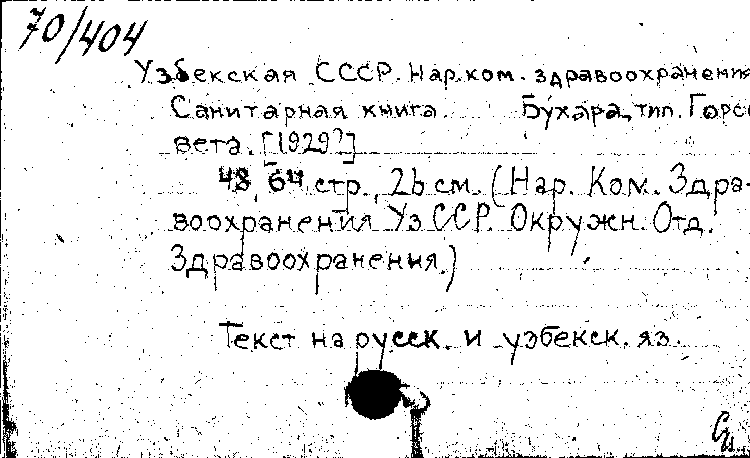 70/404
Узбекская СССР. Нар. ком. здравоохранения
Санитарная книга. Бухара, тип. Горсо
вета. [1929?]
48, 64 стр., 26 см. (Нар. Ком. Здра-
воохранения УзССР. Окружн. Отд.
Здравоохранения.)
Текст на русск. и узбекск. яз.